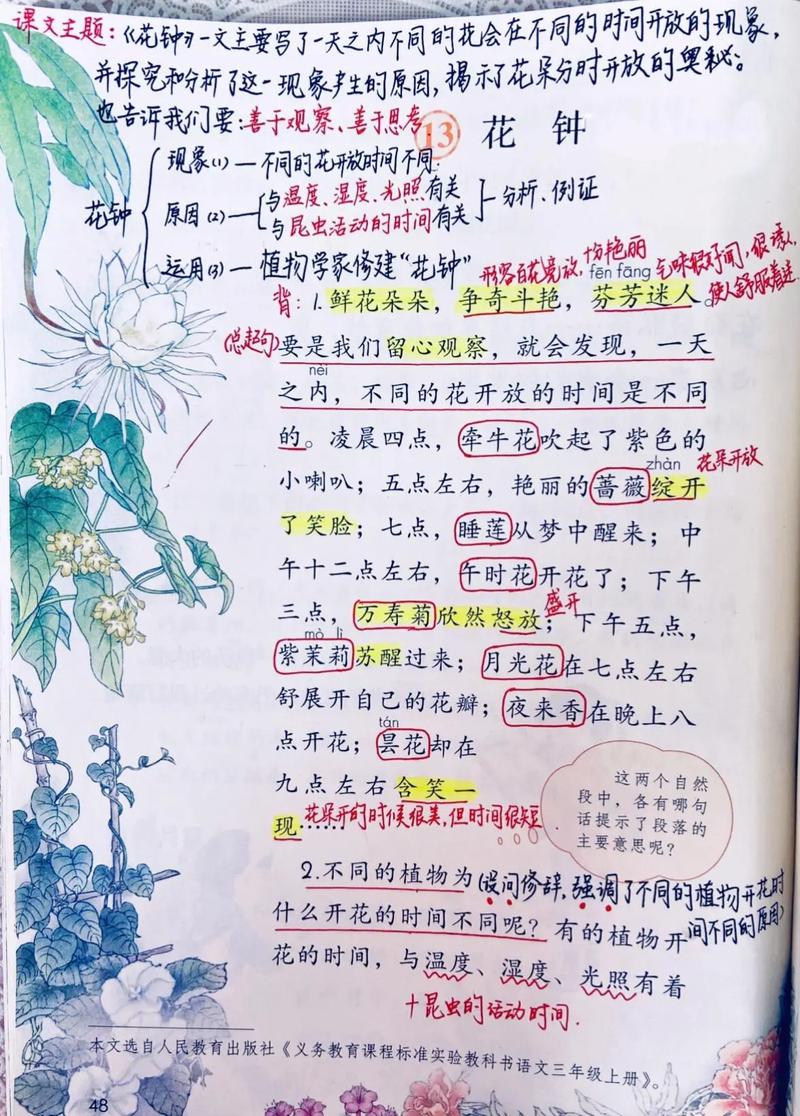 课文主题:《花钟》一文主要写了一天之内不同的花会在不同的时间开放的现象,
并探究和分析了这一现象产生的原因,揭示了花朵分时开放的奥秘。
也告诉我们要:善于观察、善于思考
13 花钟
花钟
现象(1)—不同的花开放时间不同.
原因(2)—与温度、湿度、光照有关
与昆虫活动的时间有关
分析、例证
运用(3)—植物学家修建“花钟”
形容百花竞放,十份艳丽
fēn fāng
气味很好闻,很诱人,
使人舒服着迷.
背:1.鲜花朵朵,争奇斗艳,芬芳迷人。
(总起句)要是我们留心观察,就会发现,一天
nèi
之内,不同的花开放的时间是不同
的。凌晨四点,牵牛花吹起了紫色的
zhàn
花朵开放
小喇叭;五点左右,艳丽的蔷薇绽开
了笑脸;七点,睡莲从梦中醒来;中
午十二点左右,午时花开花了;下午
盛开
三点,万寿菊欣然怒放;下午五点,
mò lì
紫茉莉苏醒过来;月光花在七点左右
舒展开自己的花瓣;夜来香在晚上八
tán
点开花;昙花却在
九点左右含笑一
现……
花朵开的时候很美,但时间很短
这两个自然
段中,各有哪句
话提示了段落的
主要意思呢?
2.不同的植物为
(设问修辞,强调了不同的植物开花时
间不同的原因)
什么开花的时间不同呢?有的植物开
花的时间,与温度、湿度、光照有着
+昆虫的活动时间.
本文选自人民教育出版社《义务教育课程标准实验教科书语文三年级上册》。
48